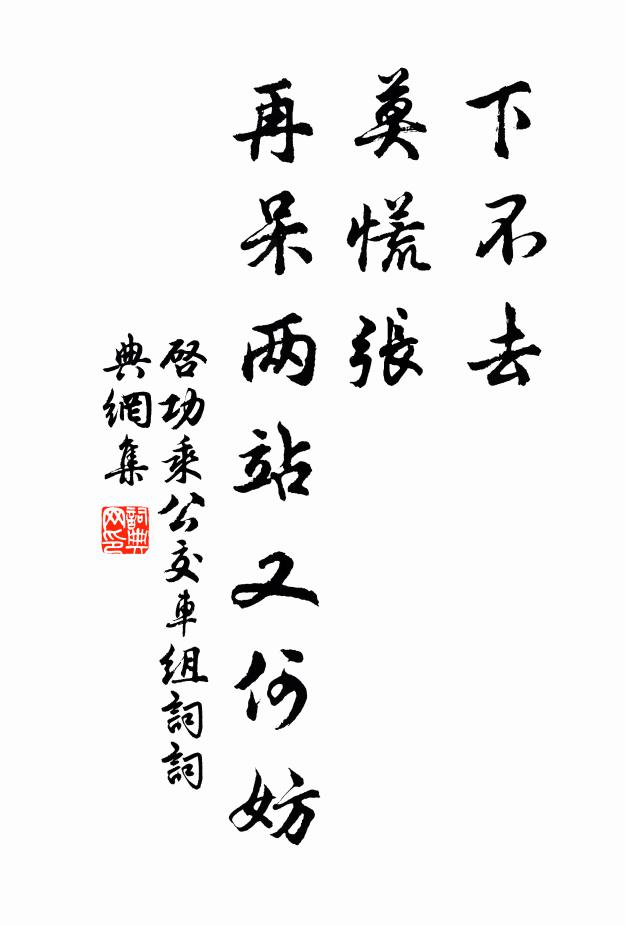 下不去
莫慌張
再呆两站又何妨
啓功乘公交車組詞詞
典網集
詞典
网印